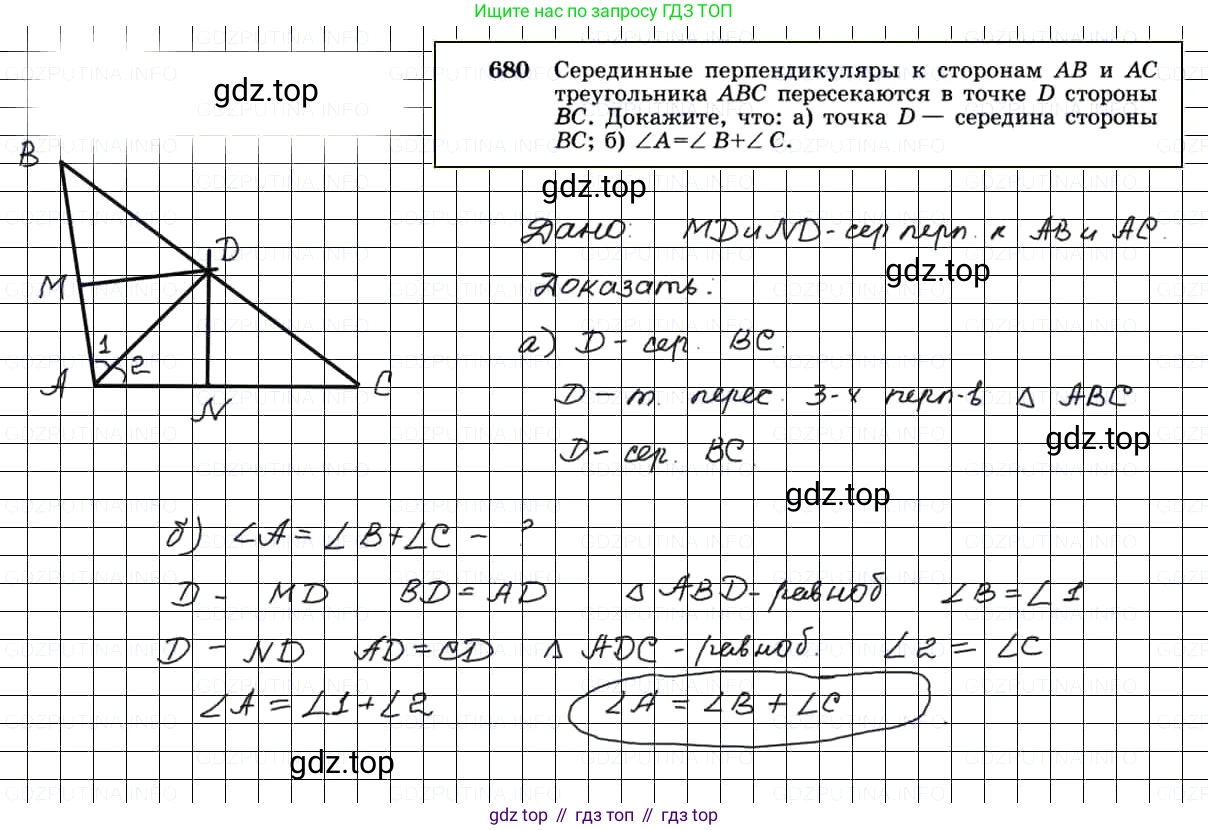 Ищите нас по запросу ГДЗ ТОП
gdz.top
680 Серединные перпендикуляры к сторонам AB и AC
треугольника ABC пересекаются в точке D стороны
BC. Докажите, что: а) точка D — середина стороны
BC; б) ∠A=∠B+∠C.
gdz.top
B
D
M
1
2
A
N
C
Дано: MD и ND - сер перп. к AB и AC.
gdz.top
Доказать:
а) D - сер. BC.
D - т. перес. 3-х перп-в △ ABC
gdz.top
D - сер. BC
gdz.top
б) ∠A = ∠B + ∠C - ?
D - MD BD = AD △ ABD - равноб ∠B = ∠1
D - ND AD = CD △ ADC - равноб. ∠2 = ∠C
∠A = ∠1 + ∠2 ∠A = ∠B + ∠C.
gdz.top
gdz top // гдз топ // гдз top
GDZPUTINA.INFO